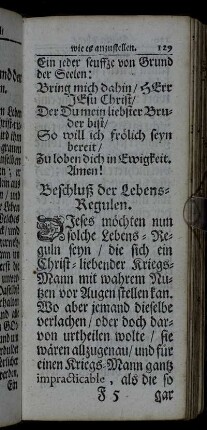 wie es anzustellen. 129
Ein jeder seuffze von Grund
der Seelen:
Bring mich dahin / HErr
JEsu Christ /
Der Du mein liebster Bru-
der bist /
So will ich frölich seyn
bereit /
Zu loben dich in Ewigkeit.
Amen!
Beschluß der Lebens-
Regulen.
DJeses möchten nun
solche Lebens-Re-
guln seyn / die sich ein
Christ-liebender Kriegs-
Mann mit wahrem Nu-
tzen vor Augen stellen kan.
Wo aber jemand dieselbe
verlachen / oder doch dar-
von urtheilen wolte / sie
wären allzugenau / und für
einen Kriegs-Mann gantz
impracticable, als die so
F 5 gar